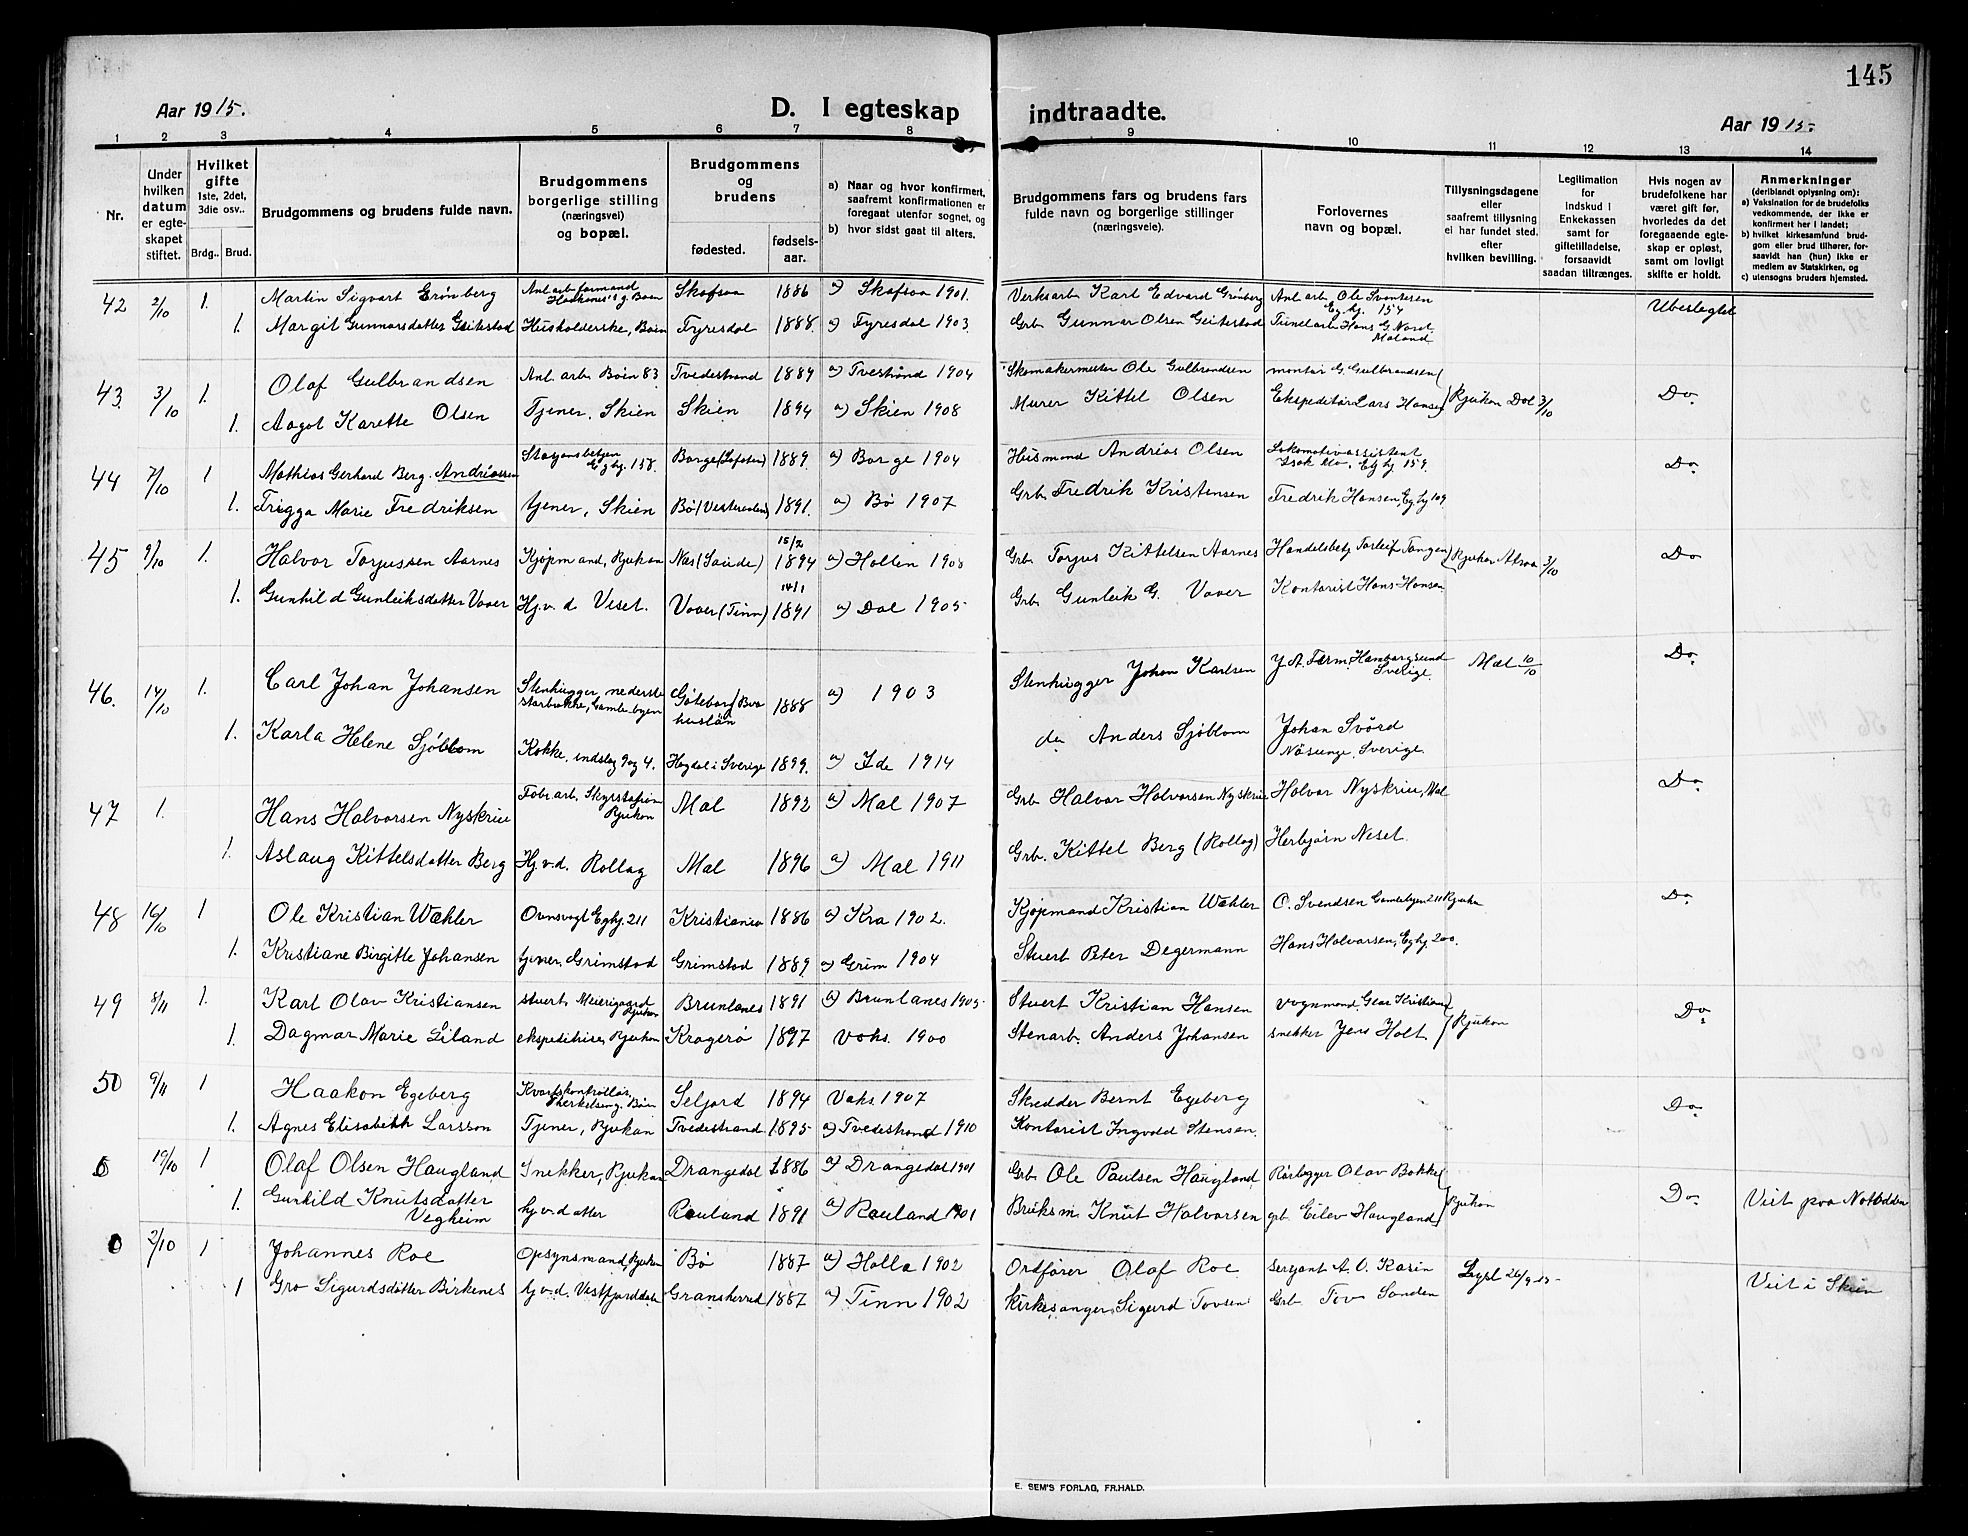 145
Aar 1915.
D. I egteskap indtraadte.
Aar 1915.
1 2 3 4 5 6 7 8 9 10 11 12 13 14
Nr.
Under hvilken datum er egteskapet stiftet.
Hvilket gifte 1ste, 2det, 3die osv..
Brdg.. Brud.
Brudgommens og brudens fulde navn.
Brudgommens borgerlige stilling (næringsvei) og bopæl.
Brudgommens og brudens
fødested.
fødselsaar.
a) Naar og hvor konfirmert, saafremt konfirmationen er foregaat utenfor sognet, og
b) hvor sidst gaat til alters.
Brudgommens fars og brudens fars fulde navn og borgerlige stillinger (næringsveie).
Forlovernes navn og bopæl.
Tillysningsdagene eller saafremt tillysning ei har fundet sted. efter hvilken bevilling.
Legitimation for indskud i Enkekassen samt for giftetilladelse, forsaavidt saadan tiltrænges.
Hvis nogen av brudefolkene har været gift før, hvorledes da det foregaaende egteskap er opløst, samt om lovligt skifte er holdt.
Anmerkninger (deriblandt oplysning om):
a) Vaksination for de brudefolks vedkommende, der ikke er konfirmert her i landet;
b) hvilket kirkesamfund brudgom eller brud tilhører, forsaavidt han (hun) ikke er medlem av Statskirken, og
c) utensogns bruders hjemsted.
42 2/10 1. Martin Sigvart Grønberg Anl. arb. formand Skafsaa 1886 a) Skafsaa 1901. Verksarb. Karl Edvard Grønberg Anl arb. Ole Svontesen Eghj. 154 Ubeslegtet
1. Margit Gunnarsdatter Geitestad Husholderske, Bøen Fyresdal 1888 a) Fyresdal 1903 Grb. Gunnar Olsen Geitestad Tunelarb. Hans G. Nord. Moland
43. 3/10 1. Olaf Gulbrandsen Anl. arb. Bøen 83. Tvedestrand 1889 a) Tvestrand 1904 Skomakermester Ole Gulbrandsen montør G. Gulbrandsen Rjukan Dal 3/10 Do.
1. Aagot Karette Olsen Tjener, Skien Skien 1894 a) Skien 1908 Murer Kittel Olsen Ekspeditør Lars Hansen
44 7/10 1 Mathias Gerhard Berg. Andriassen Eghj. 158. Borge (Lofoten) 1889. a) Borge 1904 Husmand Andrias Olsen Lokomotivassistent Isak Mo, Eghj 159. Do.
1. Frigga Marie Fredriksen tjener, Skien Bø (Vesteraalen) 1891. a) Bø 1907 Grb. Fredrik Kristensen Fredrik Hansen, Eghj 109.
45 9/10 1. Halvor Torjussen Aarnes Kjøpmand, Rjukan Næs (Saude) 15/2 1894 a) Hollen 1908 Grb. Torjus Kittelsen Aarnes Handelsbetj. Torleif Tangen Rjukan Atraa 3/10 Do
1. Gunhild Gunleiksdatter Vaaer Hj.v.d Veset. Vaaer (Tinn) 14/1 1891 a) Dal 1905 Grb. Gunleik G. Vaaer Kontorist Hans Hansen
46. 14/10 1. Carl Johan Johansen Stenhugger, nederste Gamlebyen Göteborg Bohuslän 1888 a) 1903 Stenhugger Johan Karlsen Hamborgsund Sverige. Mæl 10/10 Do.
1. Karla Helene Sjöblom Kokke, indslag 9 og 4. Hogdal i Sverige 1899. a) Ide 1914 do Anders Sjöblom Johan Svörd Näsunge, Sverige.
47 1. Hans Halvorsen Nyskrue Fabr. arb. Rjukan Mæl 1892 a) Mæl 1907 Grb Halvor Halvorsen Nyskrue Halvor Nyskrue, Mæl Do.
1. Aslaug Kittelsdatter Berg Hj.v.d. Rollag Mæl 1896 a) Mæl 1911 Grb. Kittel Berg (Rollag) Herbjørn Neset.
48 16/10 1 Ole Kristian Wæhler Ovnsvagt Eghj. 211 Kristiania 1886 a) Kra 1902. Kjøpmand Kristian Wæhler O. Svendsen Gamlebyen 211 Rjukan Do.
1. Kristiane Birgitte Johansen tjener, Grimstad Grimstad 1889 a) Grim 1904 Stuert Peter Degermann Hans Halvorsen, Eghj 200.
49 8/11 1. Karl Olav Kristiansen stuert, Meierigaard Rjukan Brunlanes 1891 a) Brunlanes 1905 Stuert Kristian Hansen vognmand Kristiansen Rjukan Do.
1. Dagmar Marie Liland ekspeditrise, Rjukan Kragerø 1897 Vaks. 1900 Stenarb. Anders Johansen snekker Jens Holt
50 9/11 1 Haakon Egeberg Kvartskontrollør, Bøen Seljord 1894 Vaks. 1907 Skredder Bernt Egeberg Do.
1. Agnes Elisabeth Larsson Tjener, Rjukan Tvedestrand 1895 a) Tvedestrand 1910 Kontorist Ingvald Stensen.
0 19/10 1 Olaf Olsen Haugland Snekker, Rjukan Drangedal 1886 a) Drangedal 1901 Grb. Ole Paulsen Haugland Rørlegger Olav Bakke Rjukan Do. Viet paa Notodden
1. Gunhild Knutsdatter Vegheim hj.v.datter Rauland 1891 a) Rauland 1901 Bruksm. Knut Halvorsen grb. Eilev Haugland
0 2/10 1 Johannes Roe Opsynsmand, Rjukan Bø 1887 a) Holla 1902 Ordfører Olaf Roe sersjant A. O. Kasin Lyst 26/9 15 Viet i Skien
1 Gro Sigurdsdatter Birkenes hj.v.d. Vestfjorddalen Gransherred 1887 a) Tinn 1902 Kirkesanger Sigurd Tovsen Grb. Tov Sanden
E. SEM'S FORLAG, FR.HALD.